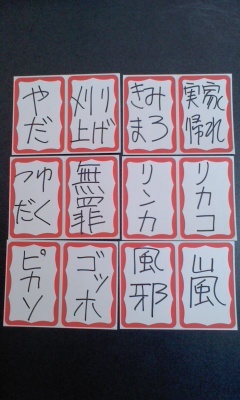 やだ
刈り
上げ
きみ
まろ
実家
帰れ
つゆ
だく
無罪
リンカ
リカコ
ピカソ
ゴッホ
風邪
嵐